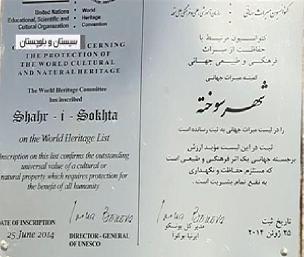 United Nations
Educational, Scientific and
Cultural Organization
World
Heritage
Convention
سیستان و بلوچستان
CONCERNING
THE PROTECTION OF
THE WORLD CULTURAL
AND NATURAL HERITAGE
The World Heritage Committee
has inscribed
Shahr - i - Sokhta
on the World Heritage List
Inscription on this list confirms the outstanding
universal value of a cultural or
natural property which requires protection for
the benefit of all humanity
DATE OF INSCRIPTION
25 June 2014
DIRECTOR-GENERAL
OF UNESCO
کنوانسیون مرتبط با
حفاظت از میراث
فرهنگی و طبیعی جهانی
کمیته میراث جهانی
شهر سوخته
را در لیست میراث جهانی به ثبت رسانده است
ثبت در این لیست مؤید ارزش
برجسته جهانی یک اثر فرهنگی و طبیعی است
که مستلزم حفاظت و نگهداری
به نفع تمام بشریت است.
تاریخ ثبت
۲۵ ژوئن ۲۰۱۴
مدیر کل یونسکو
ایرینا بوکووا